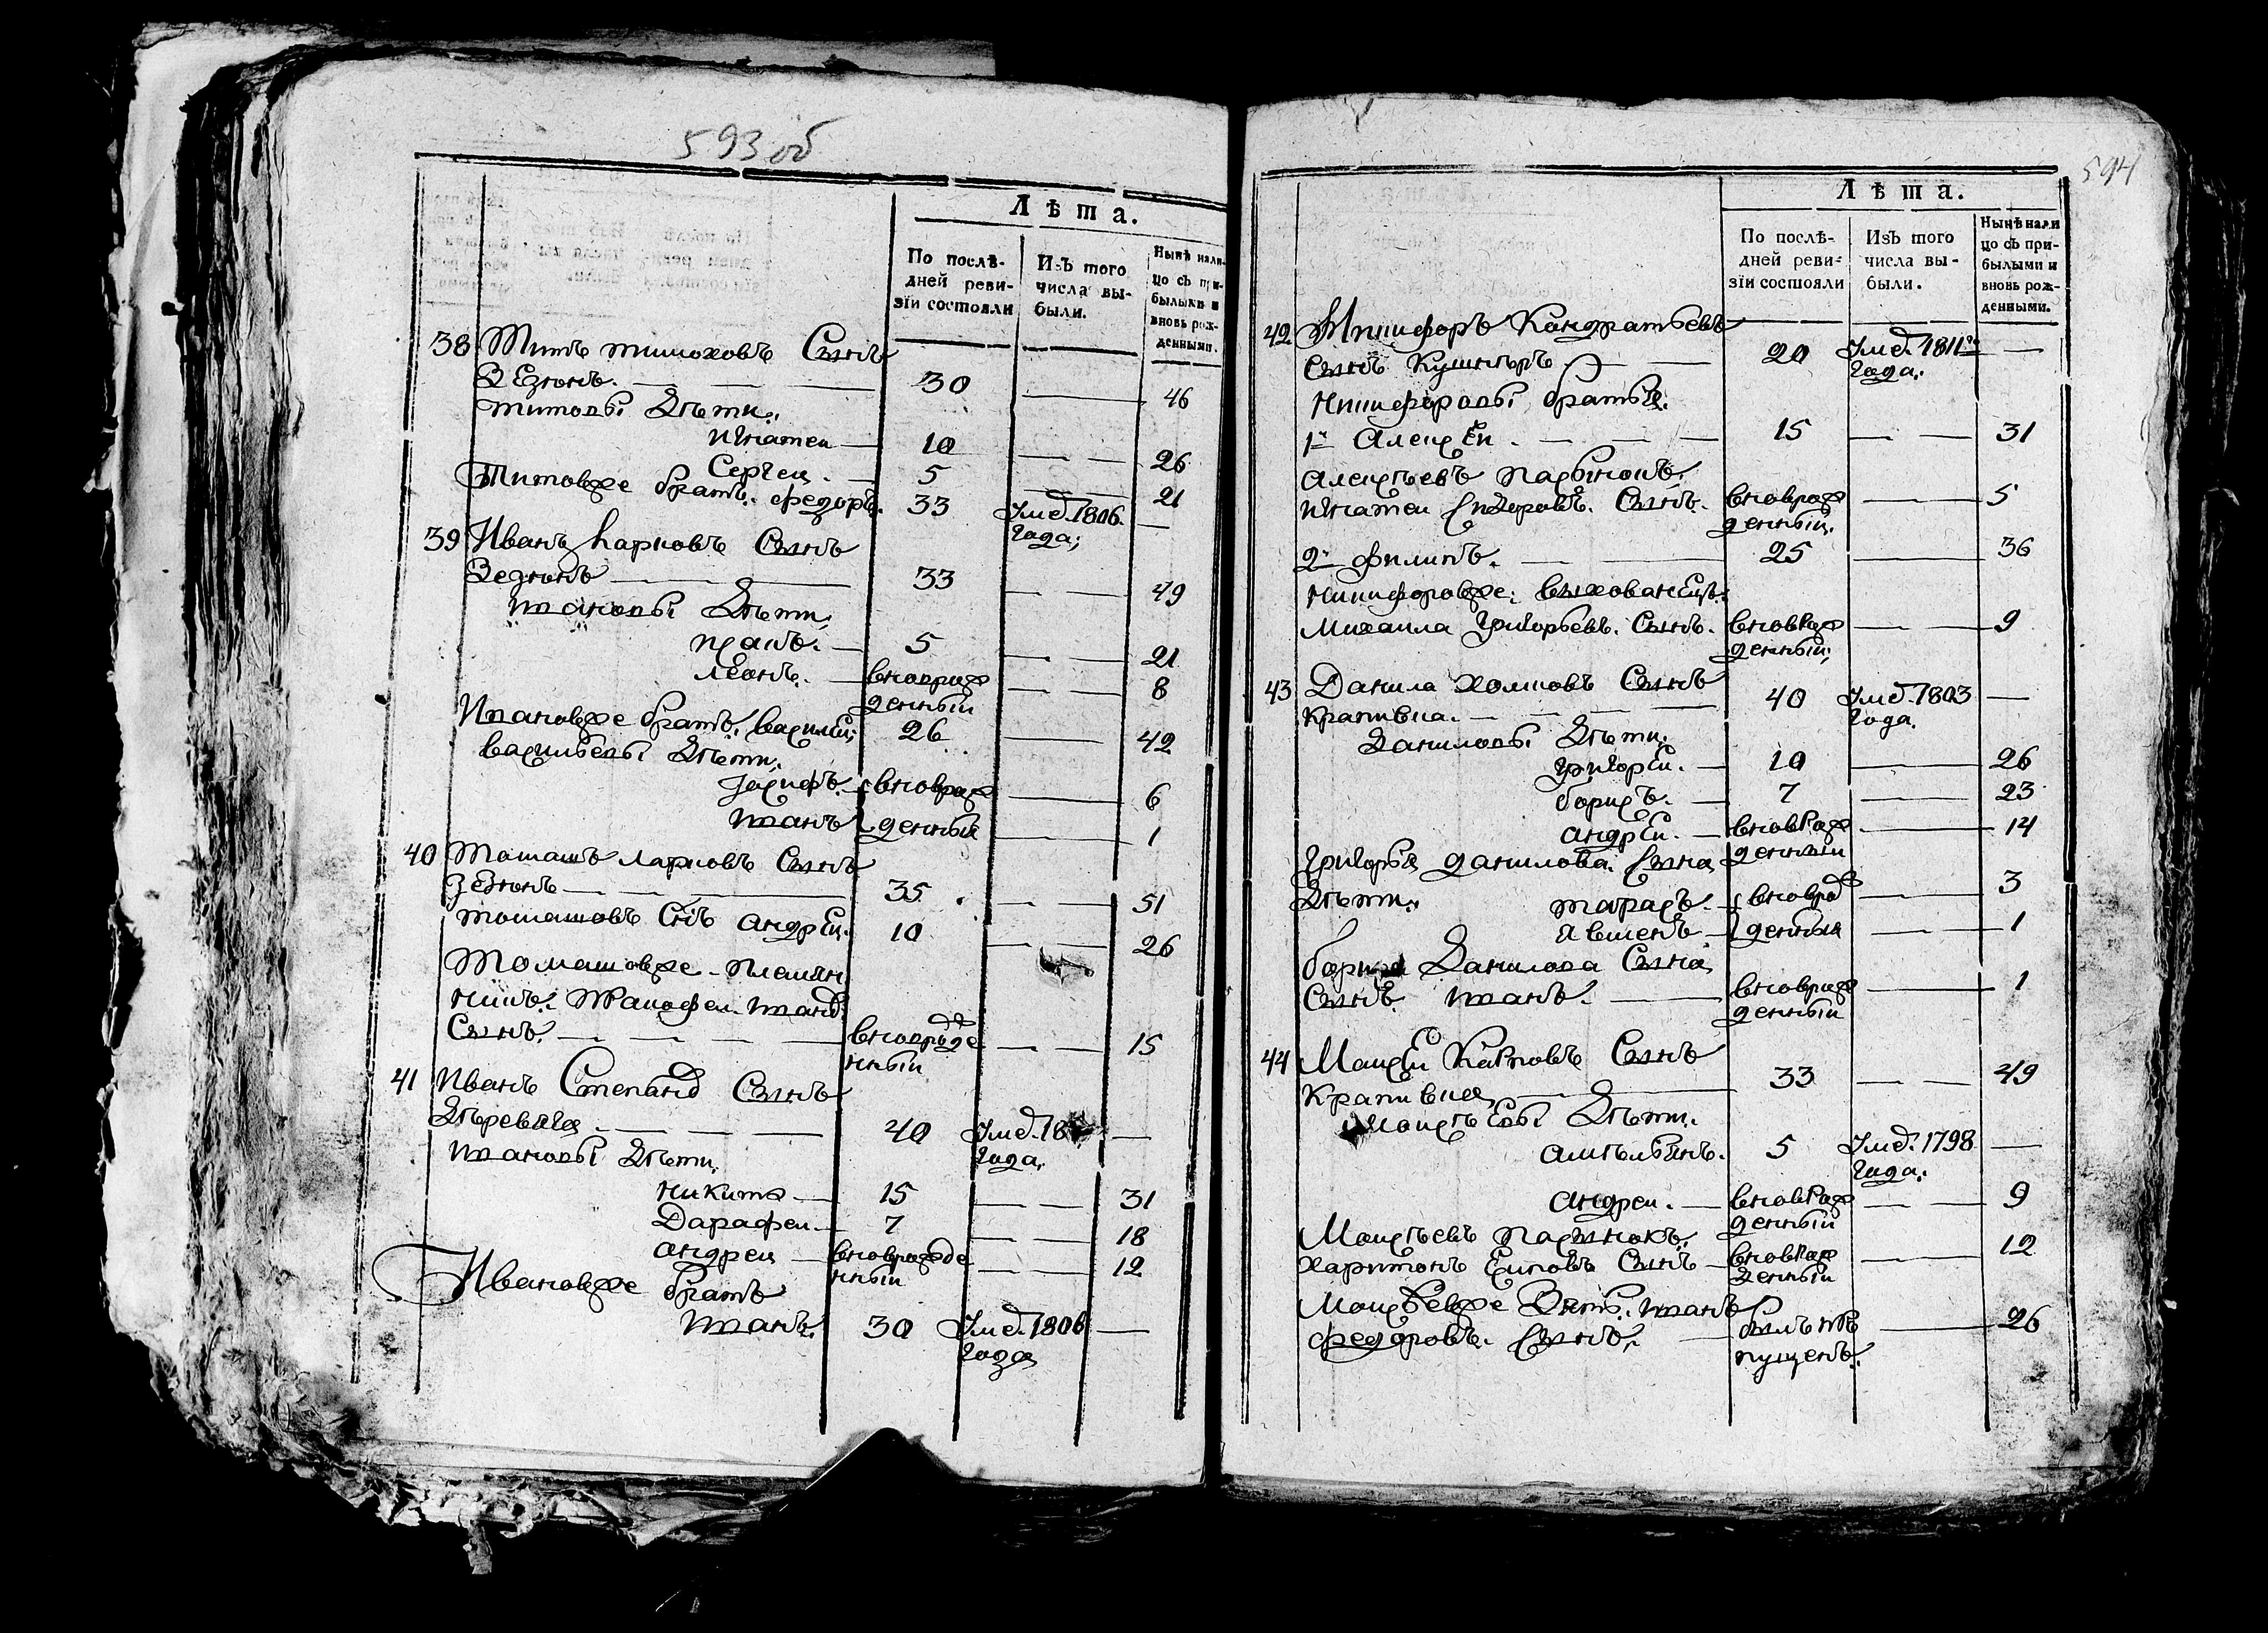 593 об
Лѣта.
По послѣ-
дней реви-
зіи состояли
Изъ того
числа вы-
были.
Нынѣ нали-
цо съ при-
былыми и
вновь рож-
денными.
38 Титъ тимоховъ Сынъ
Зезюнъ. 30 — 46
титовы Дѣти.
игнатеи — 10 — — 26
Сергеи. — 5 — 21
Титовъже братъ. федоръ. 33 Умѣ. 1806. —
года;
39 Иванъ карповъ Сынъ
Зезюнъ — 33 — — 49
ивановы Дѣти,
исакъ. — 5 — — 21
леонъ. — вноврож — — 8
денныи
Ивановъже братъ, василеи; 26 — 42
васильевы Дѣти.
Иосифъ. — вноврож — 6
иванъ денныи — 1
40 Томашъ карповъ Сынъ
Зезюнъ — 35 — — 51
томашовъ Снъ андреи. 10 — — 26
Томашовъже племян
никъ. Тимофеи иванов
Сынъ. — — — — вновржде — — 15
нныи
41 Иванъ Степанов Сынъ
Деревяга — — — 40 Умѣ. 18 —
года.
ивановы Дѣти,
никита — 15 — — 31
Дарафеи — 7 — — 18
андреи — вноврожде — — 12
нныи
Ивановъже братъ
иванъ. 30 Умѣ. 1806 —
года
594
Лѣта.
По послѣ-
дней реви-
зіи состояли
Изъ того
числа вы-
были.
Нынѣ нали
цо съ при-
былыми и
вновь рож-
денными.
42 Никифоръ Кандратьевъ
сынъ Кушнѣръ — 20 Умѣ. 1811го —
года.
Никифоровы братья.
1й Алексеи. — — — 15 — — 31
алексѣевъ пасынокъ.
игнатеи Сидоровъ. Сынъ. вноврож — 5
денныи.
2й филипъ. — 25 — 36
никифоровъже; выхованецъ.
Михаила Григорьевъ. Сынъ. вноврож — — 9
денныи;
43 Данила холмовъ Сынъ
Крапивка. — — — — 40 Умѣ. 1803 —
года.
Даниловы Дѣти.
григореи. — 10 — 26
борисъ. — 7 — 23
андреи. — вноврож — 14
денныи
григорья данилова Сына
Дѣти. тарасъ. — вноврож — 3
Явменъ — денныя — — 1
бориса Данилова Сына
Сынъ. иванъ. — вноврож — 1
денныи
44 Моисеи Карповъ Сынъ
Крапивка — 33 — — 49
Моисѣевы Дѣти.
амельянъ. 5 Умѣ. 1798 —
года.
андреи. — вноврож — — 9
денныи
Моисѣевъ пасынокъ.
харитонъ Еиповъ Сынъ — вноврож — 12
денныи
Моисѣевъже Зять. иванъ
федоровъ. Сынъ. — былъ про — 26
пущенъ.